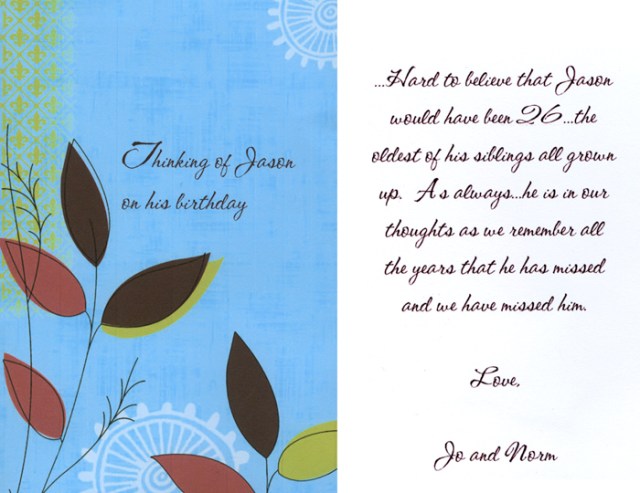 Thinking of Jason
on his birthday
...Hard to believe that Jason
would have been 26...the
oldest of his siblings all grown
up. As always...he is in our
thoughts as we remember all
the years that he has missed
and we have missed him.
Love,
Jo and Norm